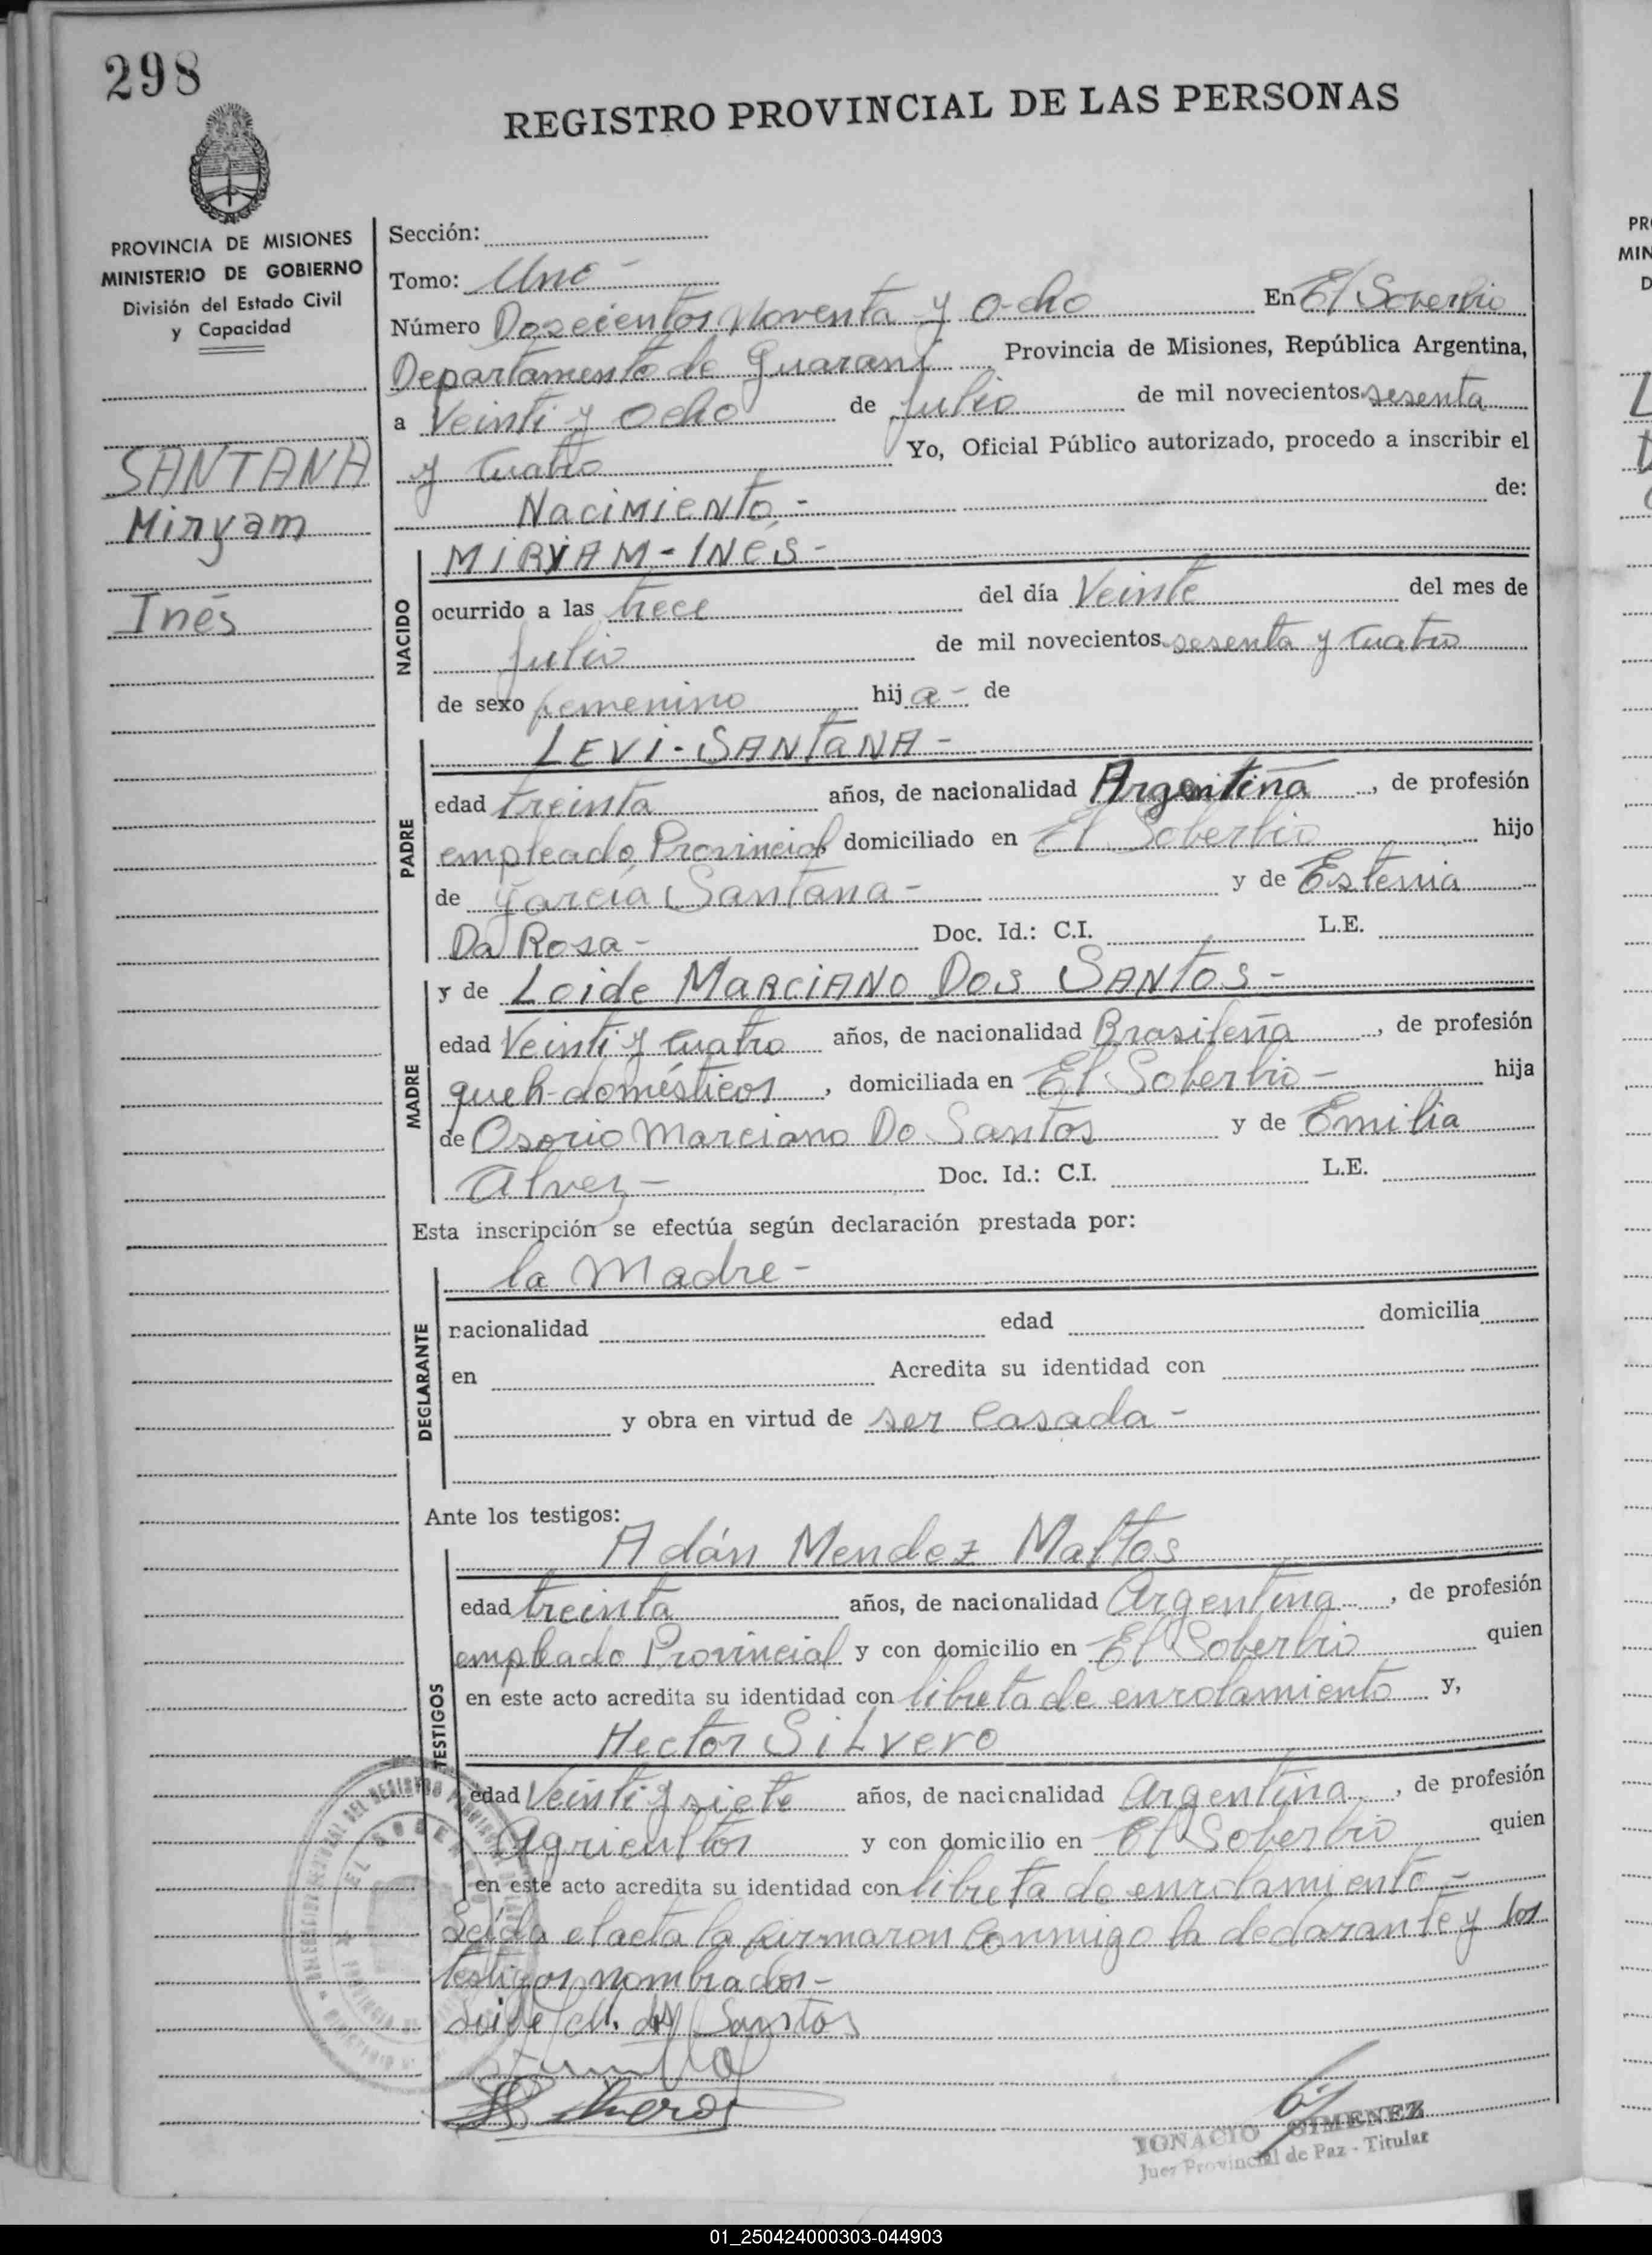 298
REGISTRO PROVINCIAL DE LAS PERSONAS
PROVINCIA DE MISIONES
MINISTERIO DE GOBIERNO
División del Estado Civil
y Capacidad
SANTANA
Miryam
Inés
Sección:
Tomo: Uno -
Número Doscientos Noventa y Ocho En El Soverbio
Departamento de Guaraní Provincia de Misiones, República Argentina,
a Veinti y Ocho de Julio de mil novecientos sesenta
y Cuatro Yo, Oficial Público autorizado, procedo a inscribir el
Nacimiento - de:
NACIDO
MIRYAM - INÉS -
ocurrido a las trece del día Veinte del mes de
Julio de mil novecientos sesenta y Cuatro
de sexo femenino hij a - de
PADRE
LEVI - SANTANA -
edad treinta años, de nacionalidad Argentina, de profesión
empleado Provincial domiciliado en El Soberbio hijo
de García Santana - y de Estenia
Da Rosa - Doc. Id.: C.I. L.E.
MADRE
y de Loide MARCIANO DOS SANTOS -
edad Veinti y Cuatro años, de nacionalidad Brasileña, de profesión
queh-domésticos, domiciliada en El Soberbio - hija
de Osorio Marciano Do Santos y de Emilia
Alvez - Doc. Id.: C.I. L.E.
Esta inscripción se efectúa según declaración prestada por:
DECLARANTE
la Madre -
nacionalidad edad domicilia
en Acredita su identidad con
y obra en virtud de ser Casada -
Ante los testigos:
TESTIGOS
Adán Mendez Mattos
edad treinta años, de nacionalidad Argentina, de profesión
empleado Provincial y con domicilio en El Soberbio quien
en este acto acredita su identidad con libreta de enrolamiento y,
Hector SiLvero
edad Veinti y siete años, de nacionalidad Argentina, de profesión
Agricultor y con domicilio en El Soberbio quien
en este acto acredita su identidad con libreta de enrolamiento -
Leida el acta la firmaron Conmigo la declarante y los
testigos nombrados -
Loide M. dos Santos
IGNACIO GIMENEZ
Juez Provincial de Paz - Titular
01_250424000303-044903